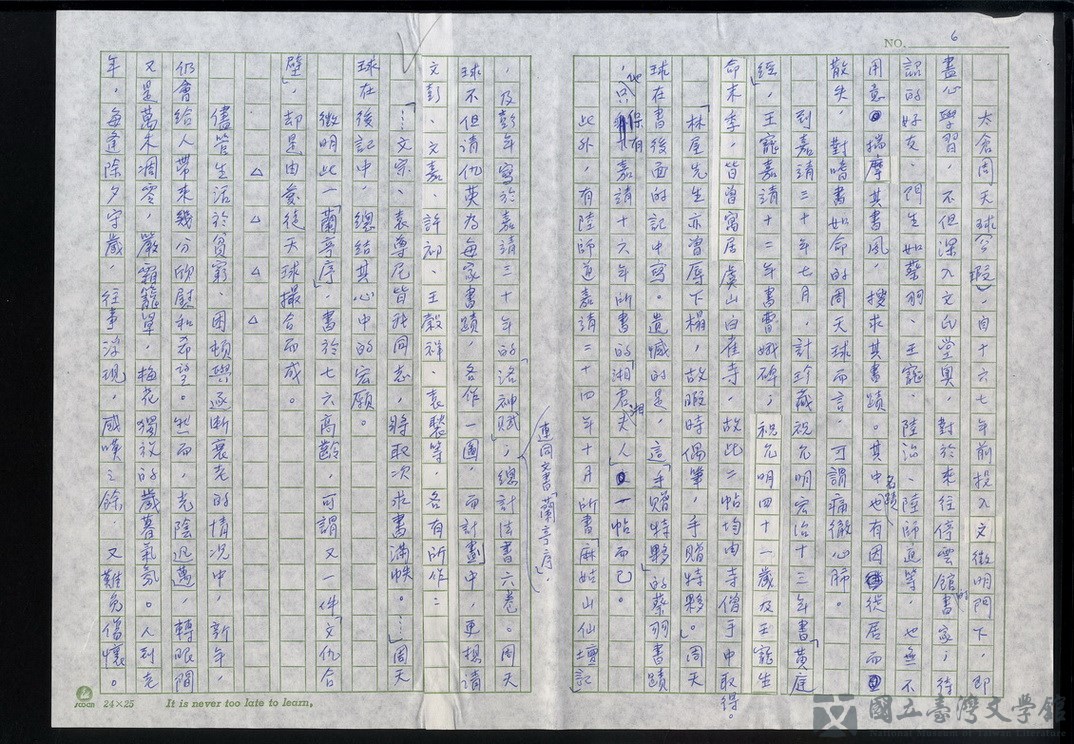 NO. 6
太倉周天球公瑕，自十六七年前投入文徵明門下，即
盡心學習，不但深入文氏堂奧，對於來往停雲館的書家；待
詔的好友、門生如蔡羽、王寵、陸治、陸師道等，也無不
用意揣摩其書風，搜求其書蹟。其中名蹟也有因從居而
散失，對嗜書如命的周天球而言，可謂痛徹心肺。
到嘉靖三十年七月，計珍藏祝允明宏治十三年書「黃庭
經」，王寵嘉靖十二年書曹娥碑；祝允明四十一歲及王寵生
命末季，皆曾寓居虞山白雀寺，故此二帖均由寺僧手中取得。
「林屋先生亦曾辱下榻，故暇時偶筆，手贈特夥。」周天
球在書後面的記中寫。遺憾的是，這「手贈特夥」的蔡羽書蹟
，他只保有嘉靖十六年所書的「湘君湘夫人」一帖而已。
此外，有陸師道嘉靖二十四年十月所書「麻姑山仙壇記」
，及彭年寫於嘉靖三十年的「洛神賦」；總計法書六卷。周天
連同文書「蘭亭序」，
球不但請仇英為每家書蹟，各作一圖，而計劃中，更想請
文彭、文嘉、許初、王穀祥、袁褧等，各有所作：
「……文宗、袁尊尼皆我同志，將取次求書滿帙。……」周天
球在後記中，總結其心中的宏願。
徵明此一「蘭亭序」，書於七六高齡，可謂又一件「文仇合
璧」，却是由愛徒天球撮合而成。
△ △ △ △
儘管生活於貧窮、困頓與逐漸衰老的情況中，新年，
仍會給人帶來幾分欣慰和希望。然而，光陰迅邁，轉眼間
又是萬木凋零，嚴霜籠罩，梅花獨放的歲暮氣氛。人到老
年，每逢除夕守歲，往事浮現，感嘆之餘，又難免傷懷。
24×25 It is never too late to learn.
國立臺灣文學館
National Museum of Taiwan Literature